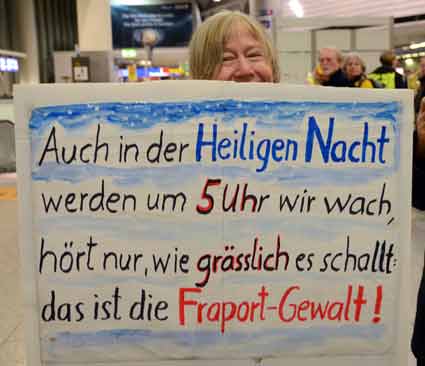 Auch in der Heiligen Nacht
werden um 5 Uhr wir wach,
hört nur, wie grässlich es schallt:
das ist die Fraport-Gewalt!